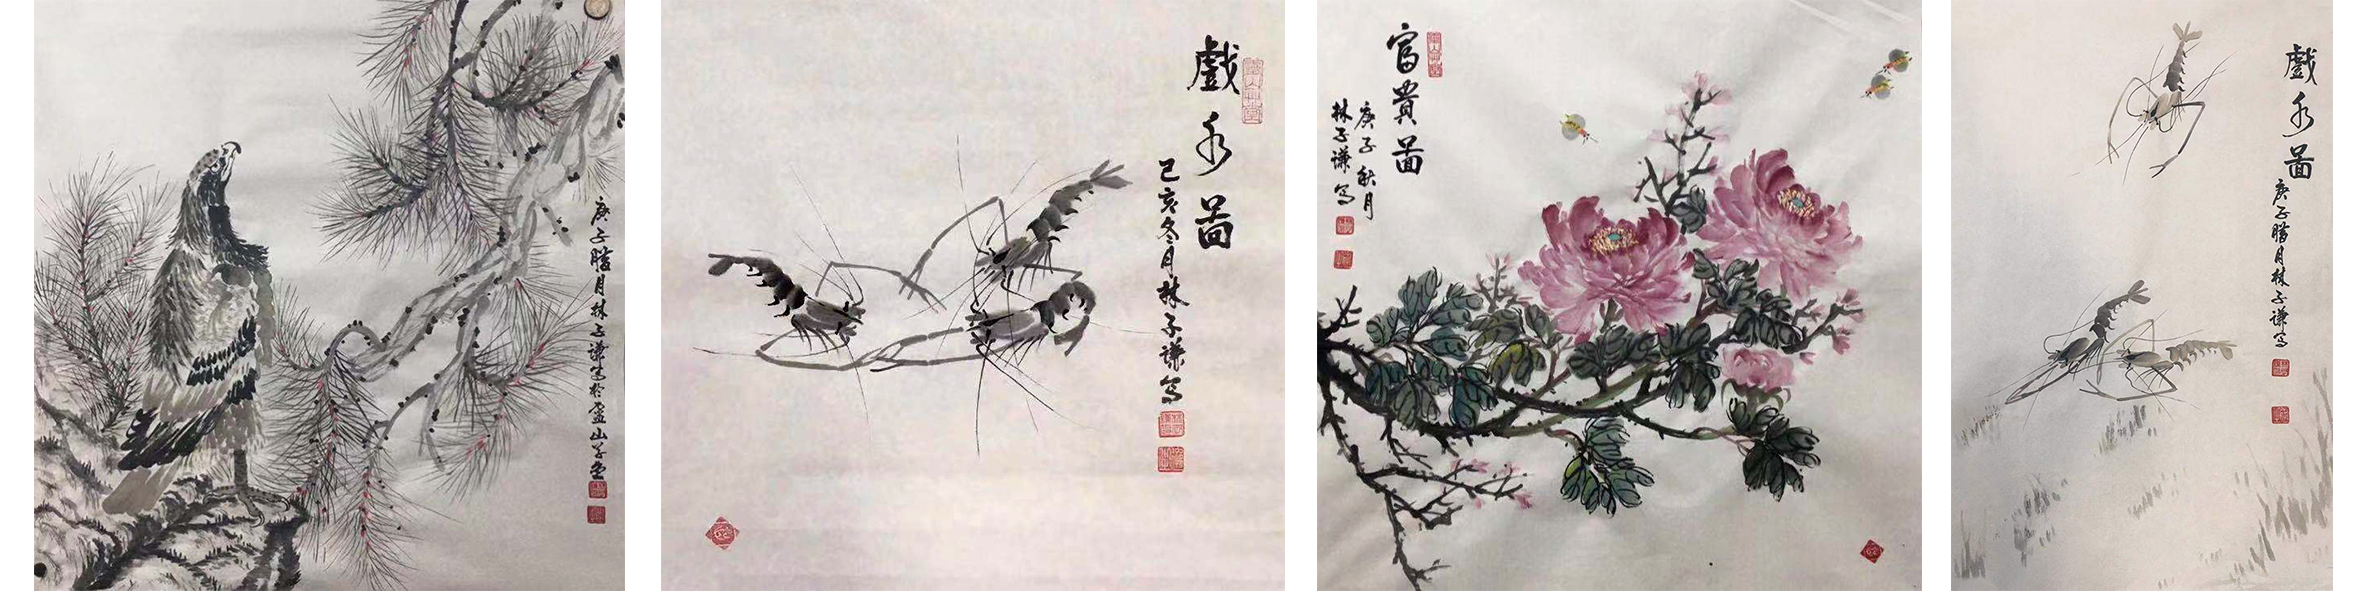 庚子腊月林子谦写於
戲水圖
己亥冬月林子谦写
富貴圖
庚子秋月
林子谦写
戲水圖
庚子腊月林子谦写